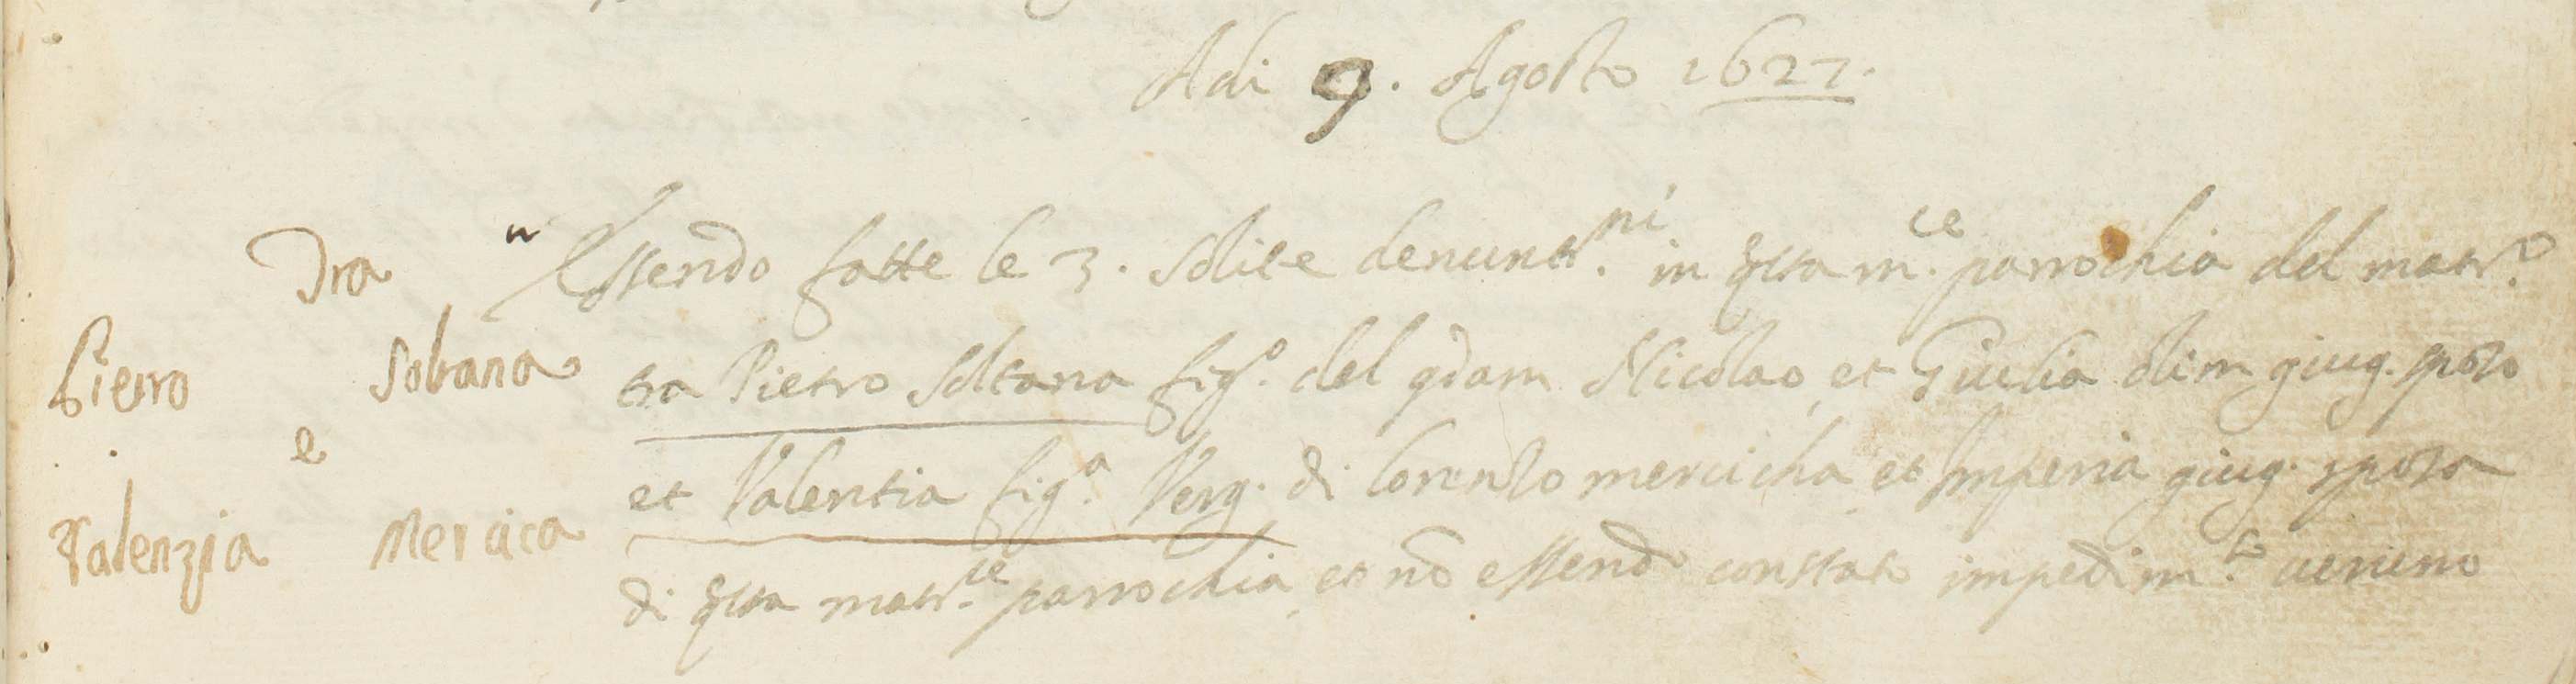 Adi 9. Agosto 1627.
Tra
Pietro Soltana
e
Valenzia Mercica
Essendo fatte le 3. solite denunt.ni in q̃sta m.ce parrochia del matr.o
tra Pietro Soltana fig.o del q̃dam Nicolao, et Giulia olim giug. sposo
et Valentia fig.a Verg. di Lorenzo mercicha, et Imperia giug. sposa
di q̃sta matr.ce parrochia, et nõ essendo constato impedim.to veruno